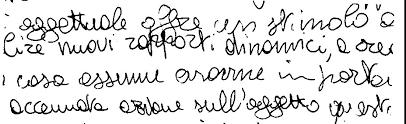 oggettuale offre uno stimolo a
lire nuovi rapporti dinamici, a crea
i cosa assume enorme importa
accennata azione sull'oggetto quest